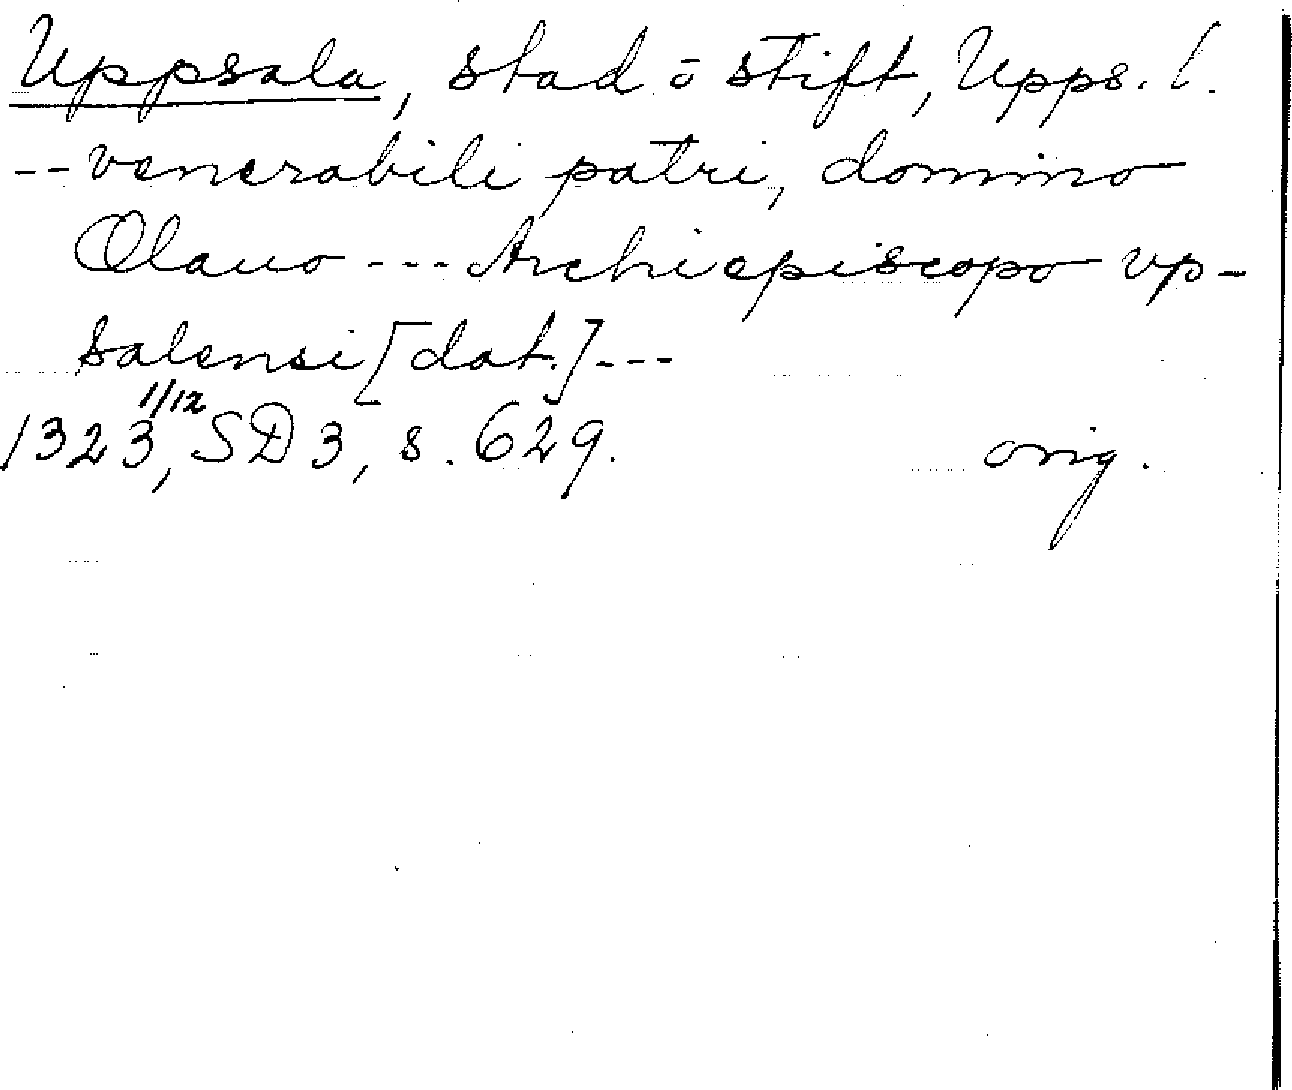 Uppsala, stad o stift, Upps. l.
-- venerabili patri, domino
Olauo --- Archiepiscopo vp-
salensi [dat.] ---
1323 1/12, SD 3, s. 629. orig.